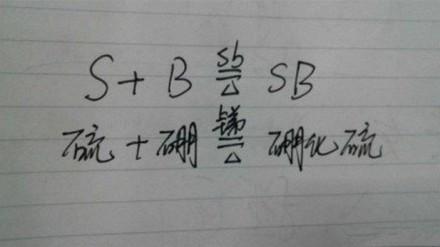 S + B =Sb/△= SB
硫 + 硼 =锑/△= 硼化硫